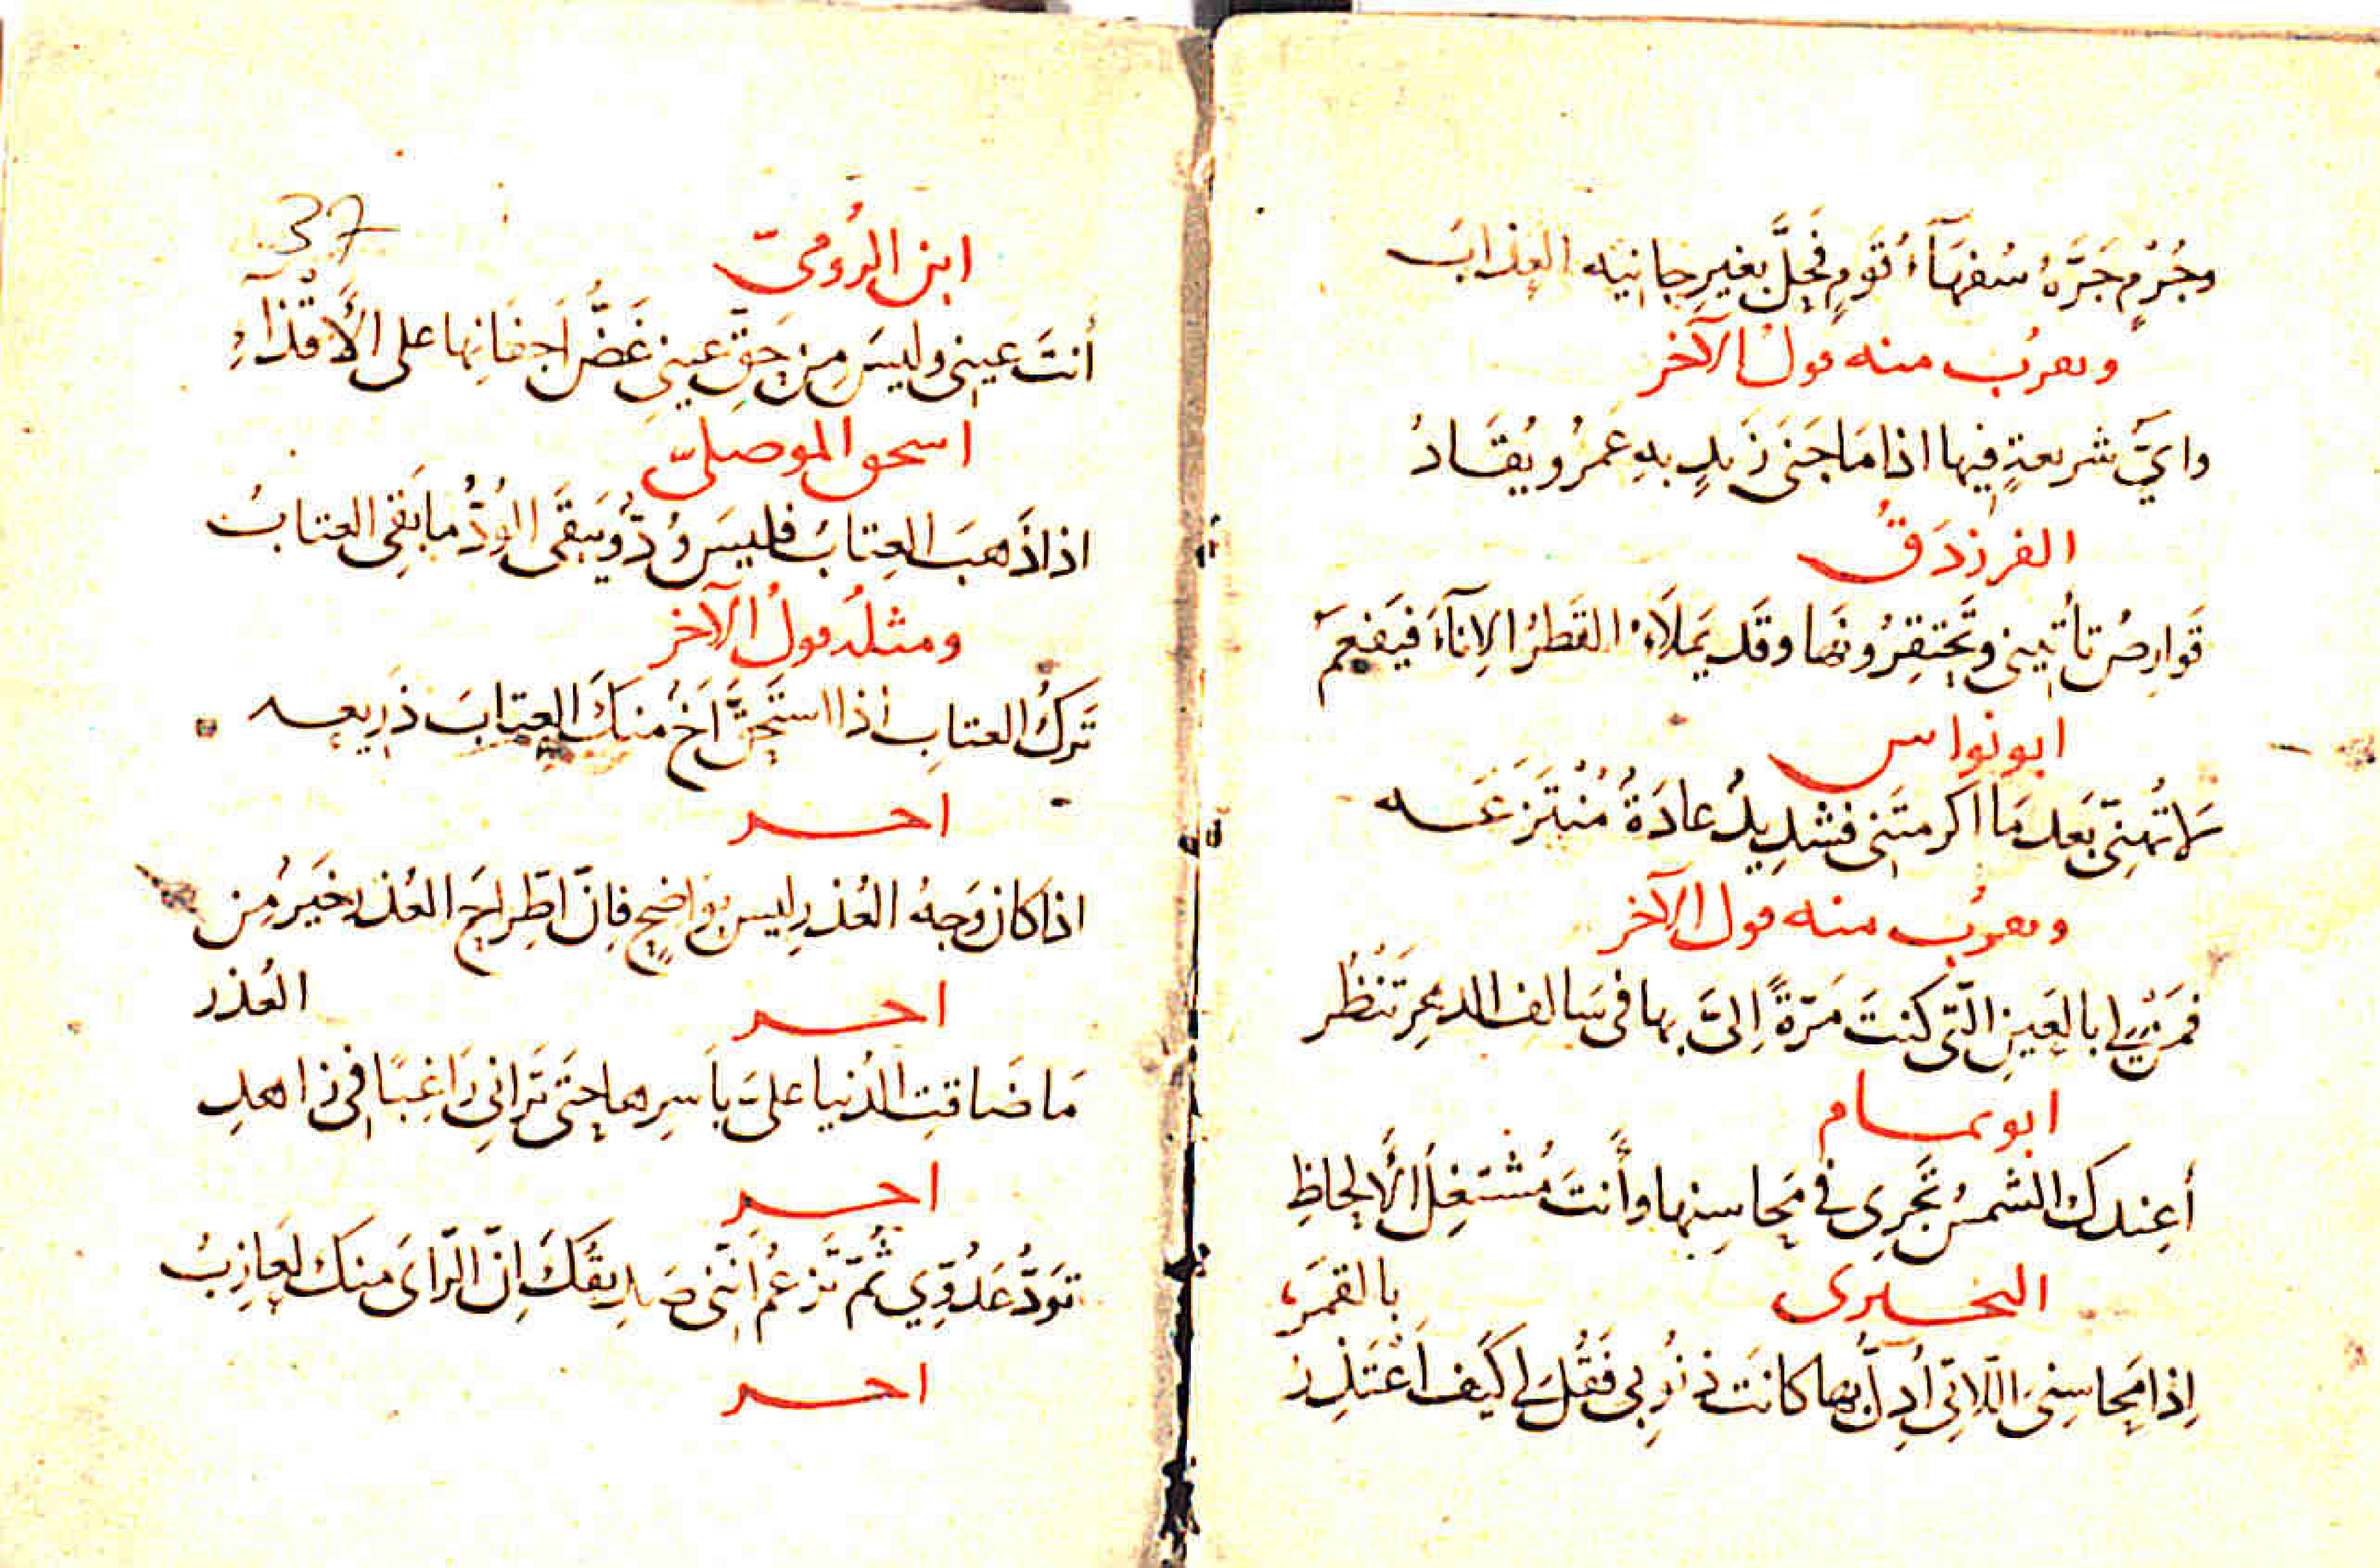 وجُرْمٍ جَرَّهُ سُفهَآءُ قَومٍ فحَلَّ بغيرِ جانيه العذابَ
ويقربُ منه قولُ الآخر
وايُّ شريعةٍ فيها اذا مَا جَنَى زَيدٍ بهِ عَمرُو يُقَادُ
الفرزدَقُ
قَوارِصُ تأتِيني وتَحتَقِرُونَها وقَد يَملَاءُ القَطرُ الاِنآءَ فَيَفعَمَ
ابو نواس
لا تُهنِّي بَعد مَا اكرمتَنِي فشدِيدٌ عادَةٌ مُنْتَزَعَه
ويقربُ منه قول الآخر
فمَن لي بالعَينِ الّتى كنتَ مَرّةً اِلىَّ بها فى سَالفِ الدهرِ تَنْظُر
ابو تمام
أعِندك الشمسُ تَجرِى فى مَحاسِنها وأنتَ مُشتَغِلُ الأَلحاظِ
بالقمَرِ
البحترى
اِذا مَحاسِنىَ اللّاتِى أُدِلُّ بها كانَت ذنُوبِى فَقُل لى كَيفَ اَعْتَذِرُ
37
ابن الرُومىّ
أنتَ عَينِى وليسَ مِن حَقِّ عينِى غَضُّ اَجفَانِها على الأَقذَآءِ
اسحق الموصلىّ
اذا ذَهبَ العِتابُ فليسَ وُدٌّ ويَبقَى الوُدُّ ما بَقِى العتابُ
ومثلُه قولُ الآخر
تَركُ العتابِ اذا استَحَقَّ اَخٌ منكَ العِتابَ ذَرِيعه
اخر
اذا كان وَجهُ العُذرِ ليس بِوَاضِحٍ فاِنّ اطِّراحَ العُذر خَيرٌ مِن
العُذر
اخر
مَا ضَاقتِ الدُنيا علىَّ بأَسرِها حتَى تَرانِى رَاغِبًا فى زاهدِ
اخر
تَوَدُّ عَدُوِّي ثُمّ تَزعُمُ اَنّنِى صَدِيقُكَ اِنّ الرّاىَ منكَ لعَازِبُ
اخر